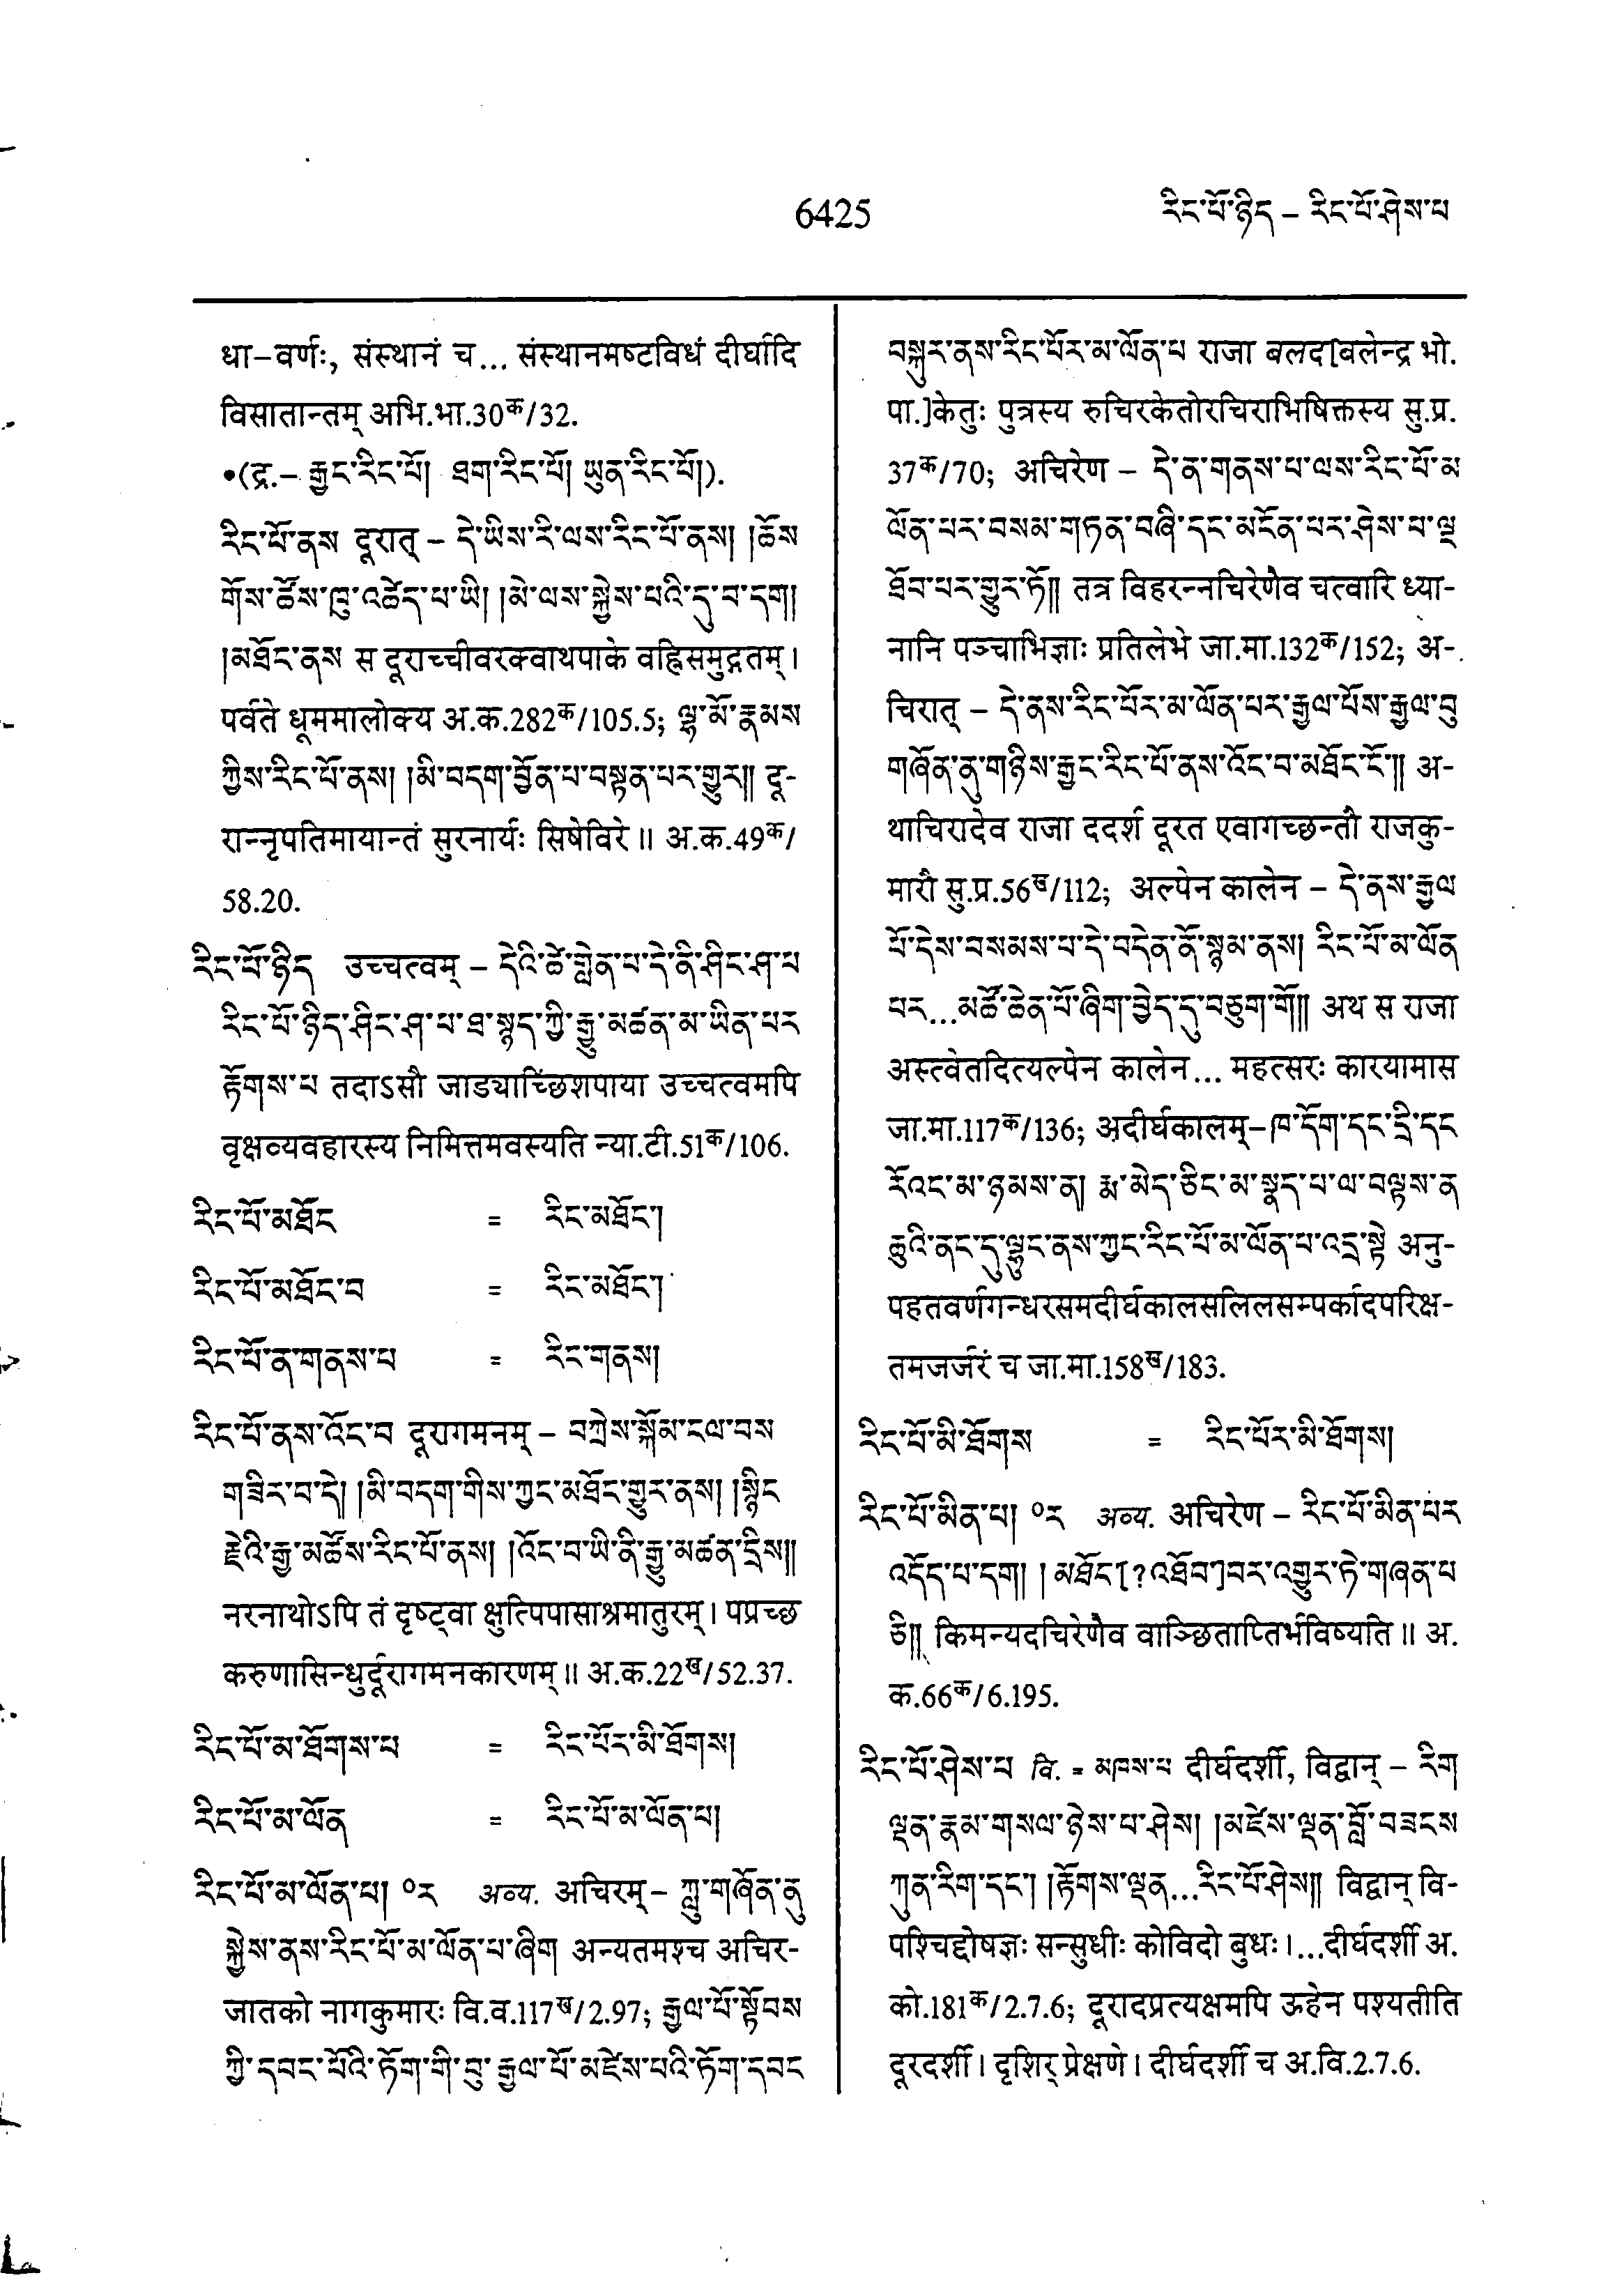 6425
རིང་པོ་ཉིད – རིང་པོ་ཤེས་པ
धा–वर्णः, संस्थानं च... संस्थानमष्टविधं दीर्घादि
विसातान्तम् अभि.भा.30क/32.
•(द्र.– རྒྱང་རིང་པོ། ཐག་རིང་པོ། ཡུན་རིང་པོ།).
རིང་པོ་ནས दूरात् – དེ་ཡིས་རི་ལས་རིང་པོ་ནས། །ཆོས
གོས་ཚོས་ཁུ་འཚེད་པ་ཡི། །མེ་ལས་སྐྱེས་པའི་དུ་བ་དག།
།མཐོང་ནས स दूराच्चीवरक्वाथपाके वह्निसमुद्गतम्।
पर्वते धूममालोक्य अ.क.282क/105.5; ལྷ་མོ་རྣམས
ཀྱིས་རིང་པོ་ནས། །མི་བདག་བྱོན་པ་བསྟན་པར་གྱུར།། दू-
रान्नृपतिमायान्तं सुरनार्यः सिषेविरे॥ अ.क.49क/
58.20.
རིང་པོ་ཉིད उच्चत्वम् – དེའི་ཚེ་གླེན་པ་དེ་ནི་ཤིང་ཤ་པ
རིང་པོ་ཉིད་ཤིང་ཤ་པ་ཐ་སྙད་ཀྱི་རྒྱུ་མཚན་མ་ཡིན་པར
རྟོགས་པ तदाऽसौ जाड्याच्छिंशपाया उच्चत्वमपि
वृक्षव्यवहारस्य निमित्तमवस्यति न्या.टी.51क/106.
རིང་པོ་མཐོང = རིང་མཐོང་།
རིང་པོ་མཐོང་བ = རིང་མཐོང་།
རིང་པོ་ན་གནས་པ = རིང་གནས།
རིང་པོ་ནས་འོང་བ दूरागमनम् – བཀྲེས་སྐོམ་ངལ་བས
གཟིར་བ་དེ། །མི་བདག་གིས་ཀྱང་མཐོང་གྱུར་ནས། །སྙིང
རྗེའི་རྒྱ་མཚོས་རིང་པོ་ནས། །འོང་བ་ཡི་ནི་རྒྱུ་མཚན་དྲིས།།
नरनाथोऽपि तं दृष्ट्वा क्षुत्पिपासाश्रमातुरम्। पप्रच्छ
करुणासिन्धुर्दूरागमनकारणम्॥ अ.क.22ख/52.37.
རིང་པོ་མ་ཐོགས་པ = རིང་པོར་མི་ཐོགས།
རིང་པོ་མ་ལོན = རིང་པོ་མ་ལོན་པ།
རིང་པོ་མ་ལོན་པ། ༠ར अव्य. अचिरम् – ཀླུ་གཞོན་ནུ
སྐྱེས་ནས་རིང་པོ་མ་ལོན་པ་ཞིག अन्यतमश्च अचिर-
जातको नागकुमारः वि.व.117ख/2.97; རྒྱལ་པོ་སྟོབས
ཀྱི་དབང་པོའི་ཏོག་གི་བུ་རྒྱལ་པོ་མཛེས་པའི་ཏོག་དབང
བསྐུར་ནས་རིང་པོར་མ་ལོན་པ राजा बलद[बलेन्द्र भो.
पा.]केतुः पुत्रस्य रुचिरकेतोरचिराभिषिक्तस्य सु.प्र.
37क/70; अचिरेण – དེ་ན་གནས་པ་ལས་རིང་པོ་མ
ལོན་པར་བསམ་གཏན་བཞི་དང་མངོན་པར་ཤེས་པ་ལྔ
ཐོབ་པར་གྱུར་ཏོ།། तत्र विहरन्नचिरेणैव चत्वारि ध्या-
नानि पञ्चाभिज्ञाः प्रतिलेभे जा.मा.132क/152; अ-
चिरात् – དེ་ནས་རིང་པོར་མ་ལོན་པར་རྒྱལ་པོས་རྒྱལ་བུ
གཞོན་ནུ་གཉིས་རྒྱང་རིང་པོ་ནས་འོང་བ་མཐོང་ངོ་།། अ-
थाचिरादेव राजा ददर्श दूरत एवागच्छन्तौ राजकु-
मारौ सु.प्र.56ख/112; अल्पेन कालेन – དེ་ནས་རྒྱལ
པོ་དེས་བསམས་པ་དེ་བདེན་ནོ་སྙམ་ནས། རིང་པོ་མ་ལོན
པར...མཚོ་ཆེན་པོ་ཞིག་བྱེད་དུ་བཅུག་གོ།། अथ स राजा
अस्त्वेतदित्यल्पेन कालेन... महत्सरः कारयामास
जा.मा.117क/136; अदीर्घकालम्–ཁ་དོག་དང་དྲི་དང
རོའང་མ་ཉམས་ན། རྨ་མེད་ཅིང་མ་སྣད་པ་ལ་བལྟས་ན
ཆུའི་ནང་དུ་ལྷུང་ནས་ཀྱང་རིང་པོ་མ་ལོན་པ་འདྲ་སྟེ अनु-
पहतवर्णगन्धरसमदीर्घकालसलिलसम्पर्कादपरिक्ष-
तमजर्जरं च जा.मा.158ख/183.
རིང་པོ་མི་ཐོགས = རིང་པོར་མི་ཐོགས།
རིང་པོ་མིན་པ། ༠ར अव्य. अचिरेण – རིང་པོ་མིན་པར
འདོད་པ་དག། །མཐོང[?འཐོབ]བར་འགྱུར་ཏེ་གཞན་པ
ཅི།། किमन्यदचिरेणैव वाञ्छिताप्तिर्भविष्यति॥ अ.
क.66क/6.195.
རིང་པོ་ཤེས་པ वि. = མཁས་པ दीर्घदर्शी, विद्वान् – རིག
ལྡན་རྣམ་གསལ་ཉེས་པ་ཤེས། །མཛེས་ལྡན་བློ་བཟངས
ཀུན་རིག་དང་། །རྟོགས་ལྡན...རིང་པོ་ཤེས།། विद्वान् वि-
पश्चिद्दोषज्ञः सन्सुधीः कोविदो बुधः।...दीर्घदर्शी अ.
को.181क/2.7.6; दूरादप्रत्यक्षमपि ऊहेन पश्यतीति
दूरदर्शी। दृशिर् प्रेक्षणे। दीर्घदर्शी च अ.वि.2.7.6.